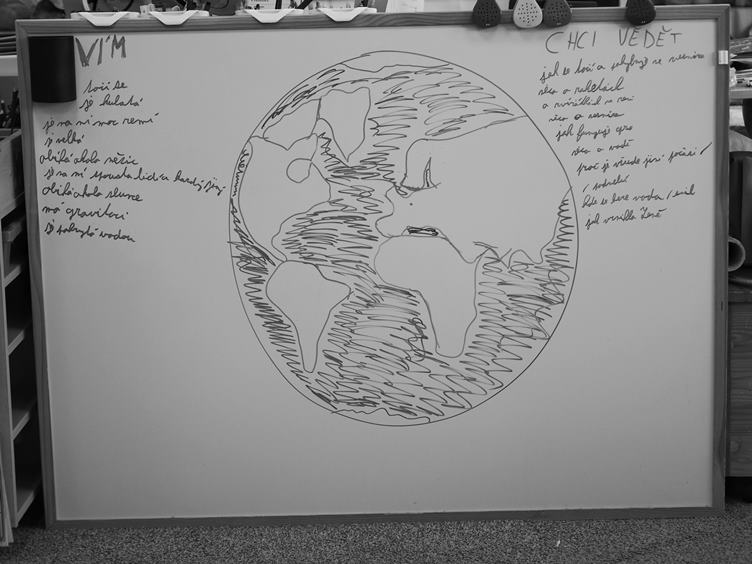 VÍM
točí se
je kulatá
je na ní moc zemí
je velká
obíhá okolo měsíc
je na ní spousta lidí a každý jiný
obíhá okolo slunce
má gravitaci
je pokrytá vodou
CHCI VĚDĚT
jak se točí a pohybuje ve vesmíru
něco o raketách
o zvířátkách na zemi
něco o vesmíru
jak funguje
něco o vodě
proč je všude jiné počasí /
/ podnebí
kde se bere voda /
jak vznikla Země